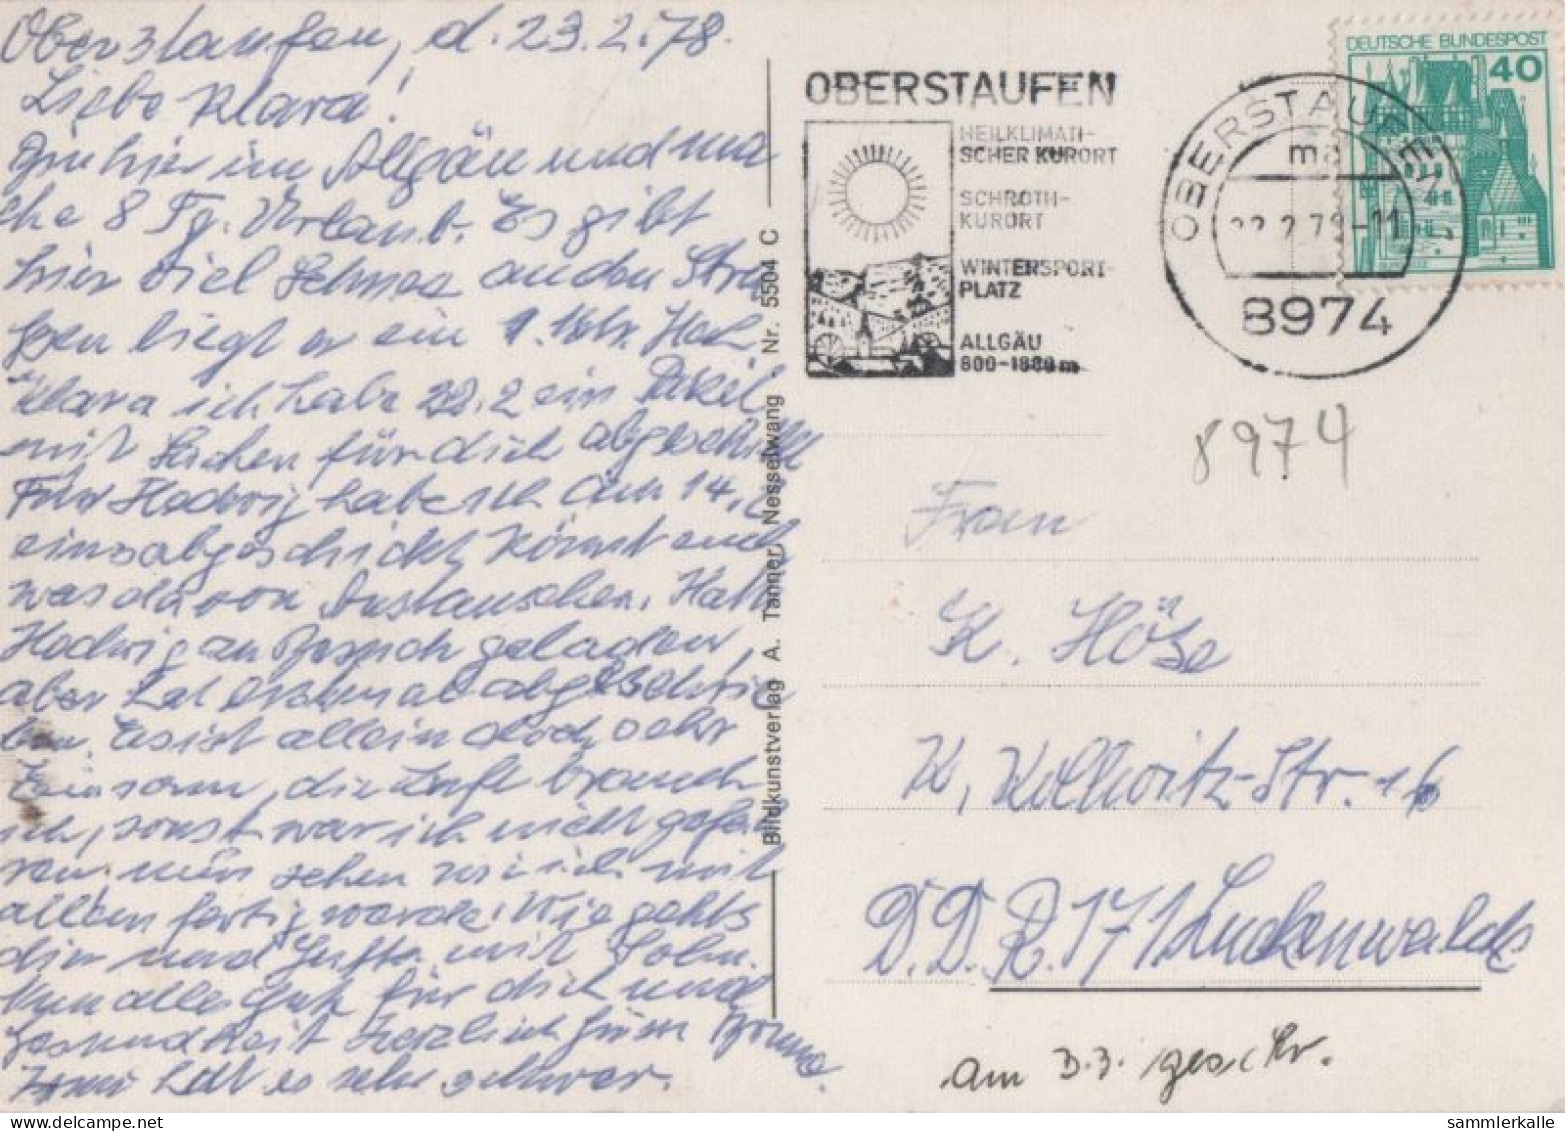 Oberstaufen, d. 23.2.78.
Liebe Klara!
Bin hier im Allgäu und ma
che 8 Tg. Urlaub. Es gibt
hier viel Schnee an den Stra
ßen liegt er ein 1 Mtr. Hoch.
Klara ich habe 22.2 ein Paket
mit Sachen für dich abgeschickt
Für Hedwig habe ich am 14.2
eins abgeschickt, könnt euch
was davon Austauschen. Hatte
Hedwig zu Besuch geladen,
aber hat erstmal abgeschrie
ben. Es ist allein doch sehr
einsam, die brauch
ich, sonst war ich nicht gefah
ren mir sehen wie ich mit
allem fertig werde. Wie gehts
dir und mit Sohn.
Nun alles gute für dich und
Gesundheit Herzlich
hat es sehr schwer.
Bildkunstverlag A. Tanner, Nesselwang Nr. 5504 C
OBERSTAUFEN
HEILKLIMATI-
SCHER KURORT
SCHROTH-
KURORT
WINTERSPORT-
PLATZ
ALLGÄU
800-1880 m
OBERSTAUFEN
8974
DEUTSCHE BUNDESPOST
40
8974
Frau
K. Höße
K. Kollwitz-Str. 16
D.D.R. 171 Luckenwalde
am 3.3. geschr.
sammlerkalle